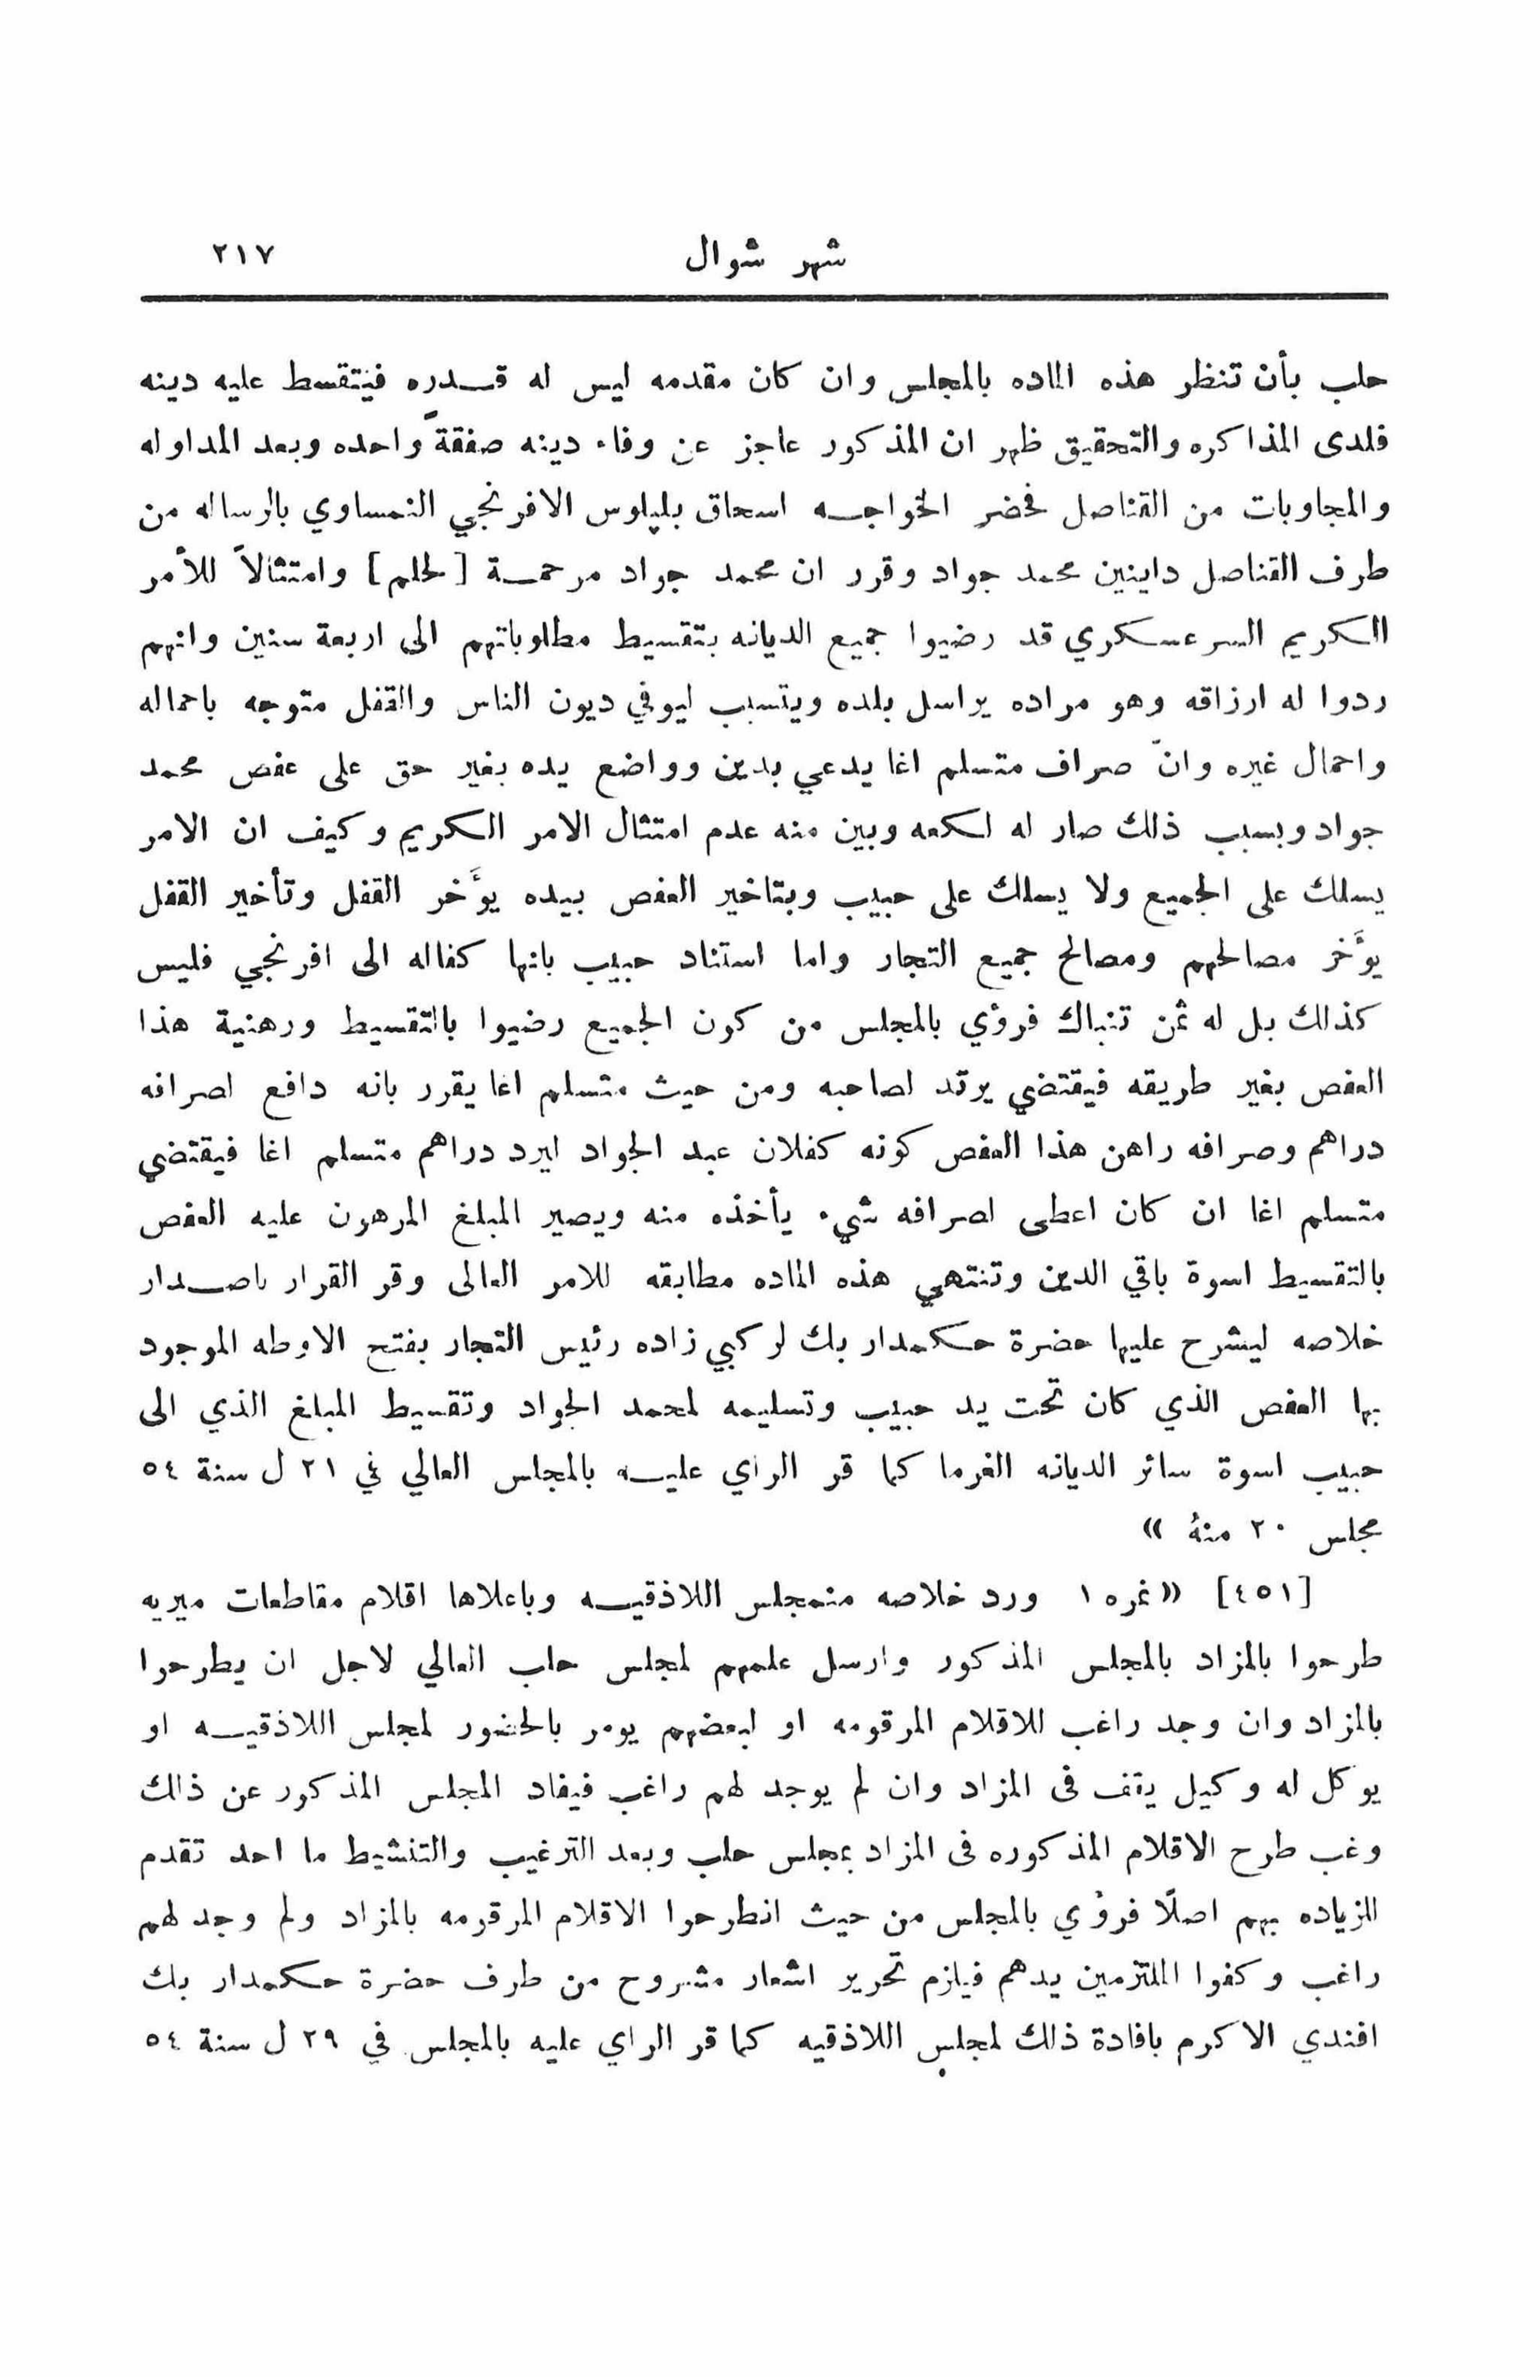 شهر شوال ٢١٧
حلب بأن تنظر هذه الماده بالمجلس وان كان مقدمه ليس له قـدره فيتقسط عليه دينه
فلدى المذاكره والتحقيق ظهر ان المذكور عاجز عن وفاء دينه صفقةً واحده وبعد المداوله
والمجاوبات من القناصل فحضر الخواجـه اسحاق بليلوس الافرنجي النمساوي بالرساله من
طرف القناصل داينين محمد جواد وقرر ان محمد جواد مرحمـة [لحلم] وامتثالاً للأمر
الكريم السرعسكري قد رضيوا جميع الديانه بتقسيط مطلوباتهم الى اربعة سنين وانهم
ردوا له ارزاقه وهو مراده يراسل بلده ويتسبب ليوفي ديون الناس والقفل متوجه باحماله
واحمال غيره وانّ صراف متسلم اغا يدعي بدين وواضع يده بغير حق على عفص محمد
جواد وبسبب ذلك صار له لكعه وبين منه عدم امتثال الامر الكريم وكيف ان الامر
يسلك على الجميع ولا يسلك على حبيب وبتاخير العفص بيده يوَّخر القفل وتأخير القفل
يوَّخر مصالحهم ومصالح جميع التجار واما استناد حبيب بانها كفاله الى افرنجي فليس
كذلك بل له ثمن تنباك فروٴي بالمجلس من كون الجميع رضيوا بالتقسيط ورهنية هذا
العفص بغير طريقه فيقتضي يرتد لصاحبه ومن حيث متسلم اغا يقرر بانه دافع لصرافه
دراهم وصرافه راهن هذا العفص كونه كفلان عبد الجواد ليرد دراهم متسلم اغا فيقتضي
متسلم اغا ان كان اعطى لصرافه شيء يأخذه منه ويصير المبلغ المرهون عليه العفص
بالتقسيط اسوة باقي الدين وتنتهي هذه الماده مطابقه للامر العالى وقر القرار باصـدار
خلاصه ليشرح عليها حضرة حكمدار بك لركبي زاده رئيس التجار بفتح الاوطه الموجود
بها العفص الذي كان تحت يد حبيب وتسليمه لمحمد الجواد وتقسيط المبلغ الذي الى
حبيب اسوة سائر الديانه الغرما كما قر الراي عليـه بالمجلس العالي في ٢١ ل سنة ٥٤
مجلس ٢٠ منهُ »
[٤٥١] « نمره ١ ورد خلاصه منمجلس اللاذقيـه وباعلاها اقلام مقاطعات ميريه
طرحوا بالمزاد بالمجلس المذكور وارسل علمهم لمجلس حلب العالي لاجل ان يطرحوا
بالمزاد وان وجد راغب للاقلام المرقومه او لبعضهم يومر بالحضور لمجلس اللاذقيـه او
يوكل له وكيل يقف فى المزاد وان لم يوجد لهم راغب فيفاد المجلس المذكور عن ذلك
وغب طرح الاقلام المذكوره فى المزاد بمجلس حلب وبعد الترغيب والتنشيط ما احد تقدم
للزياده بهم اصلًا فروٴي بالمجلس من حيث انطرحوا الاقلام المرقومه بالمزاد ولم وجد لهم
راغب وكفوا الملتزمين يدهم فيلزم تحرير اشعار مشروح من طرف حضرة حكمدار بك
افندي الاكرم بافادة ذلك لمجلس اللاذقيه كما قر الراي عليه بالمجلس في ٢٩ ل سنة ٥٤